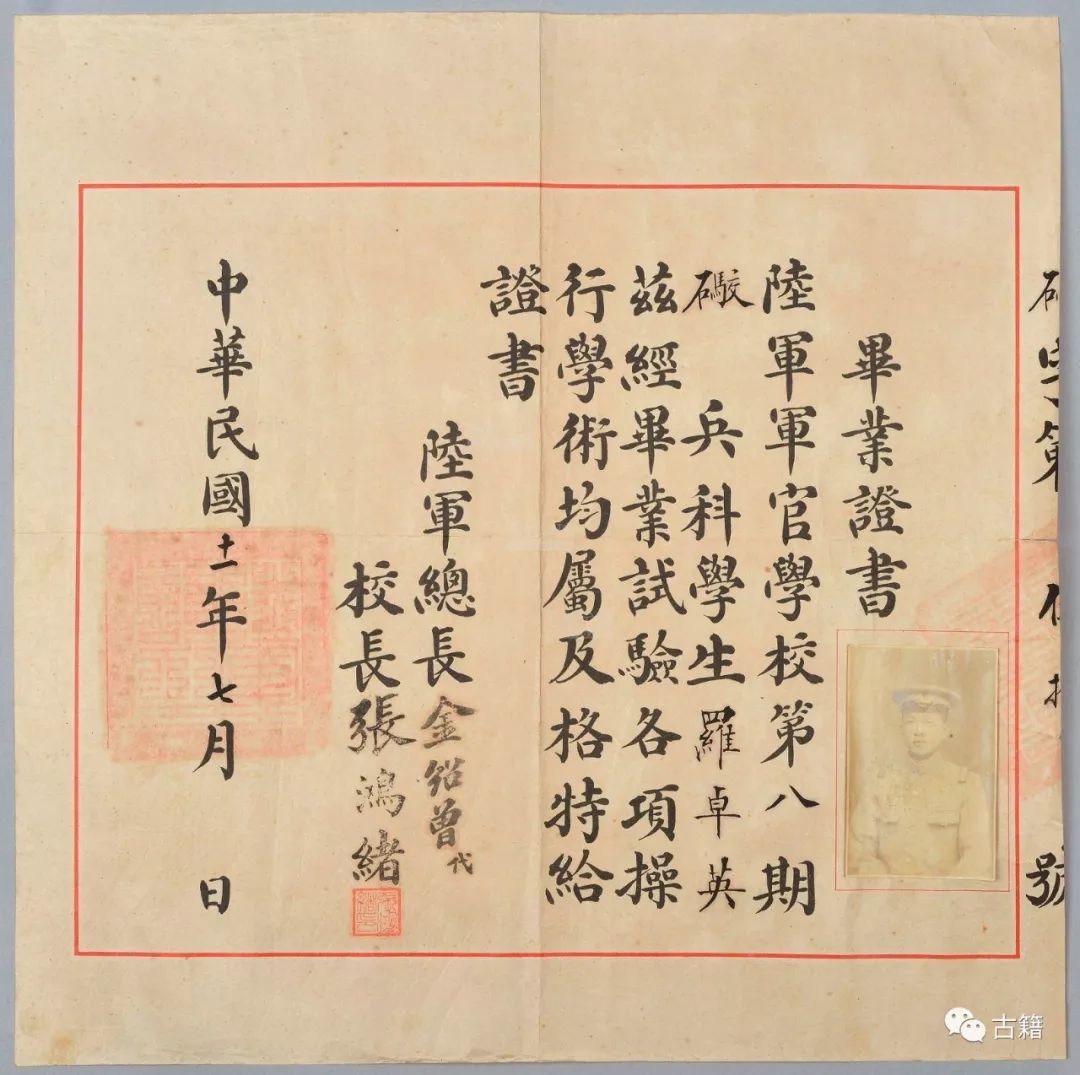 字第
號
畢業證書
陸軍軍官學校第八期
礮兵科學生羅卓英
茲經畢業試驗各項操
行學術均屬及格特給
證書
陸軍總長金紹曾代
校長張鴻緒
中華民國十一年七月 日
古籍